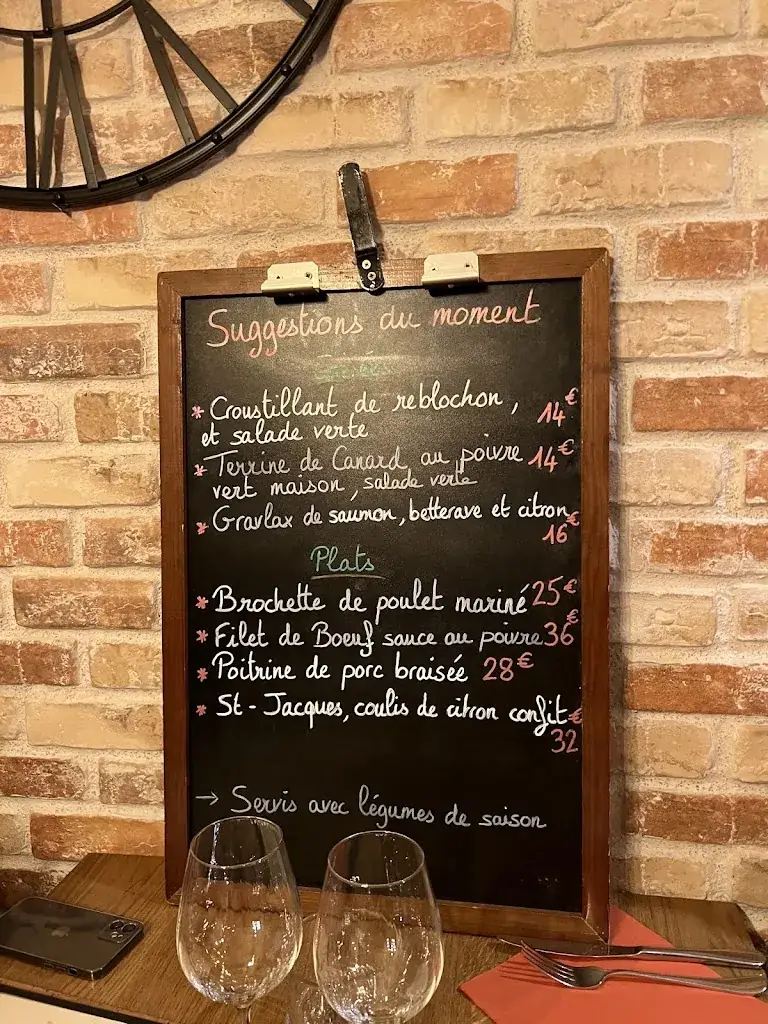 Suggestions du moment
* Croustillant de reblochon, 14€
et salade verte
* Terrine de Canard au poivre 14€
vert maison, salade verte
* Gravlax de saumon, betterave et citron
16€
Plats
* Brochette de poulet mariné 25€
* Filet de Boeuf sauce au poivre 36€
* Poitrine de porc braisée 28€
* St-Jacques, coulis de citron confit €
32
→ Servis avec légumes de saison